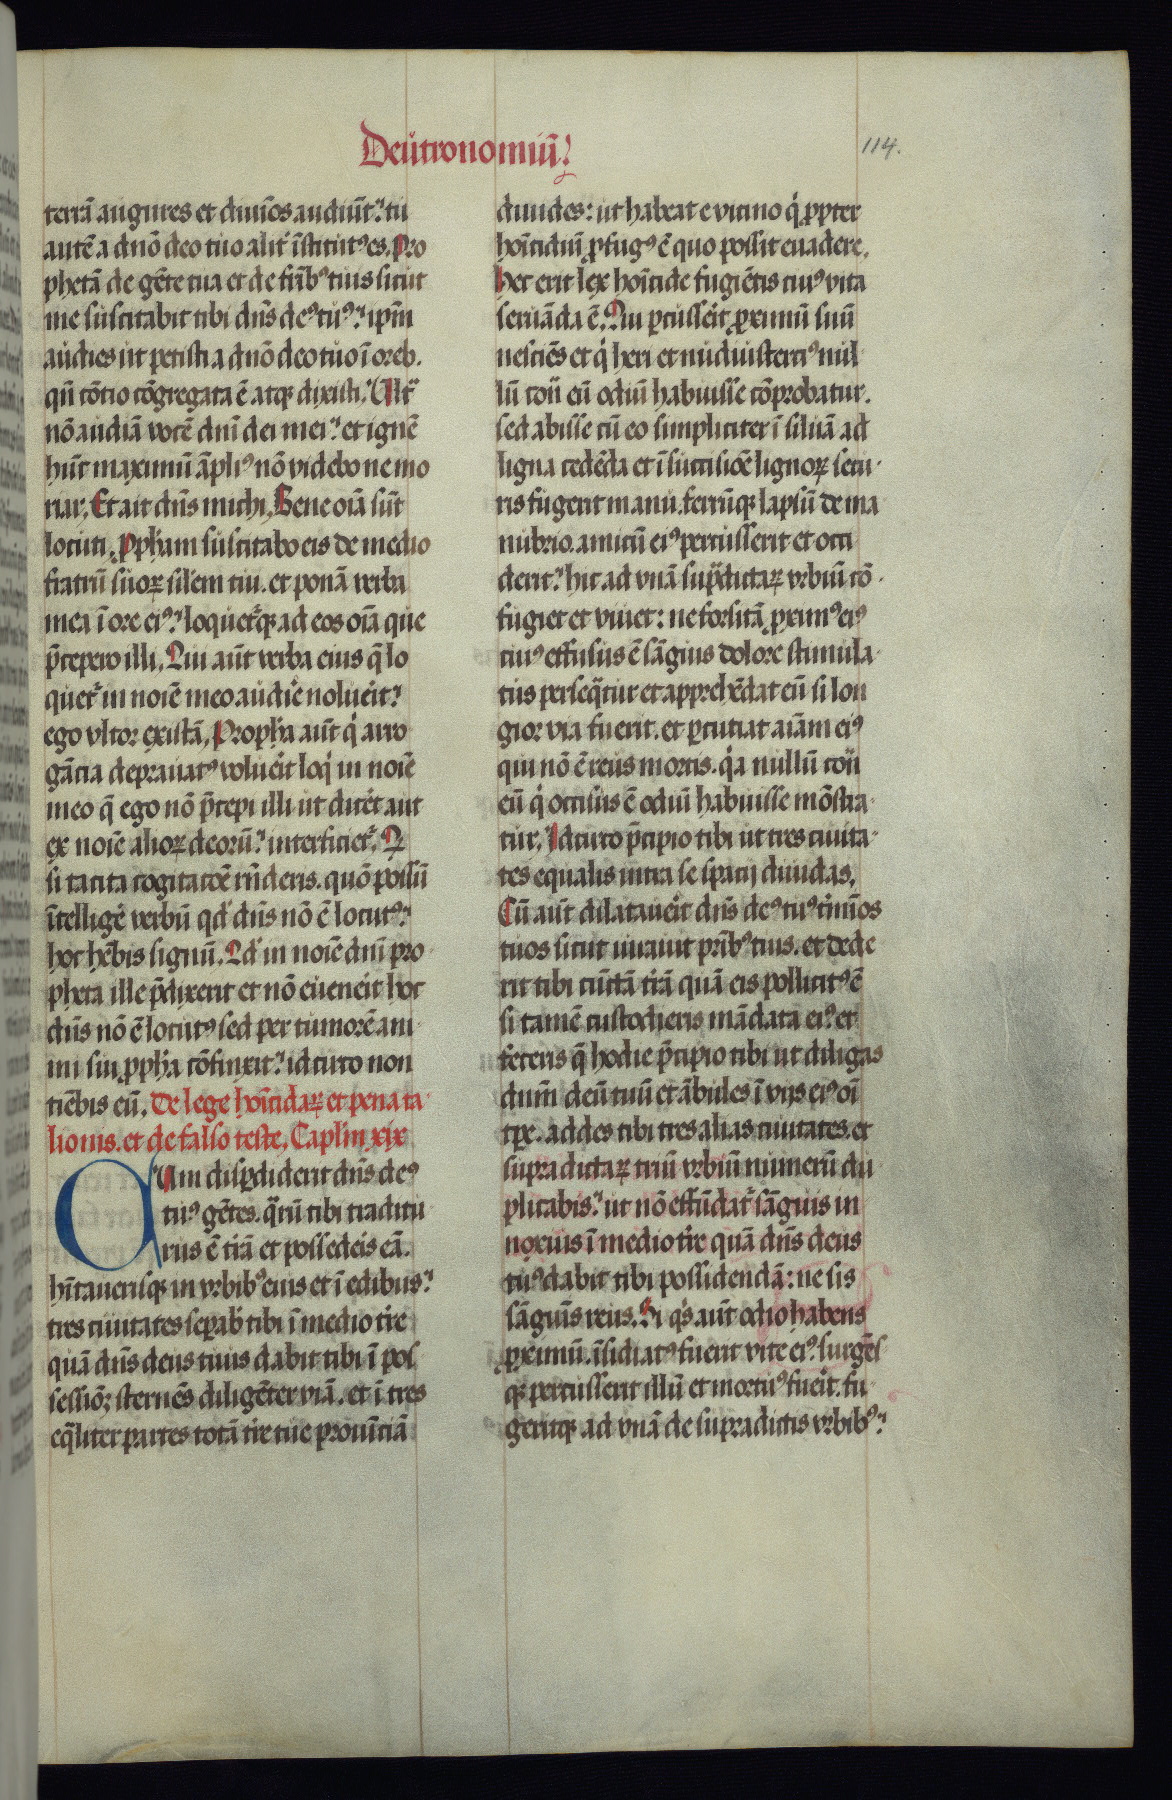 Deutronomiū.
114.
terrā augures et diuīos audiūt. tu
autē a dnō deo tuo alit̄ īstitut⁹ es. Pro
phetā de gēte tua et de frīb⁹ tuis sicut
me suscitabit tibi dn̄s de⁹ tu⁹. ip̄m
audies ut petisti a dnō deo tuo ī oreb.
qn̄ cōtio cōgregata ē atq; dixisti. Ultͣ
nō audiā vocē dnī dei mei. et ignē
hūc maximū āpli⁹ nō videbo ne mo
riar. Et ait dn̄s michi. Bene oīa sūt
locuti. ꝓph̄am suscitabo eis de medio
fratrū suoꝝ silem tui. et ponā verba
mea ī ore ei⁹. loquet᷑q; ad eos oīa que
p̄cepero illi. Qui aūt verba eius q̄ lo
quet᷑ in noīe meo audire noluerit.
ego vltor existā. Proph̄a aūt q̇ arro
gācia deprauat⁹ voluerit loq̇ in noīe
meo q̄ ego nō p̄cepi illi ut diceret aut
ex noīe alioꝝ deorū. interficiet᷑. Q
si tacita cogitatōe rn̄deris. quō possū
ītellige verbū qd̓ dn̄s nō ē locut⁹.
hoc hēbis signū. Qd̓ in noīe dnī pro
pheta ille p̄dixerit et nō euenerit hoc
dn̄s nō ē locut⁹ sed per tumorē ani
mi sui ꝓph̄a cōfinxit. idcirco non
timēbis eū. De lege hoīcidaꝝ et pena ta
lionis. et de falso teste. Caplm xix
Cum disꝑdiderit dn̄s de⁹
tu⁹ gētes. quarū tibi traditu
rus ē trā et possederis eā.
hītauerisq; in vrbib⁹ eius et ī edibus.
tres ciuitates seꝑab̄ tibi ī medio tr̄e
quā dn̄s deus tuus dabit tibi ī pos
sessiōꝫ sternēs diligēter viā. et ī tres
eq̄liter partes totā tr̄e tue prouīciā
diuides: ut habeat e vicino q̇ ꝓpter
hoīcidiū ꝓfug⁹ ē quo possit euadere.
Hec erit lex hoīcide fugiētis cui⁹ vita
seruāda ē. Qui ꝑcusserit ꝓximū suū
nesciēs et q̇ heri et nudiusterci⁹ nul
lū cont̄ eū odiū habuisse cōprobatur.
sed abisse cū eo simpliciter ī siluā ad
ligna cedēda et ī succisiōe lignoꝝ secu
ris fugerit manu. ferrūq; lapsū de ma
nubrio. amicū ei⁹ percusserit et occi
derit. hic ad vnā supͣdictaꝝ vrbiū cō
fugiet et viuet: ne forsitā ꝓxim⁹ ei⁹
cui⁹ effusus ē sāguis dolore stimula
tus perseq̄tur et apprehēdat eū si lon
gior via fuerit. et ꝑcutiat aīam ei⁹
qui nō ē reus mortis. q̇a nullū cont̄
eū q̇ occisus ē odiū habuisse mōstra
tur. Idcirco p̄cipio tibi ut tres ciuita
tes equalis inter se spacij diuidas.
Cū aūt dilatauerit dn̄s de⁹ tu⁹ t̄minos
tuos sicut iurauit pr̄ib⁹ tuis. et dede
rit tibi cūctā trā quā eis pollicit⁹ ē
si tamē custodieris mādata ei⁹. et
feceris q̄ hodie p̄cipio tibi ut diligas
dnm̄ deū tuū et ābules ī vijs ei⁹ oī
tꝑe. addes tibi tres alias ciuitates. et
supradictaꝝ triū vrbiū numerū du
plicabis. ut nō effūdat᷑ sāguis in
noxius ī medio tr̄e quā dn̄s deus
tu⁹ dabit tibi possidendā: ne sis
sāguīs reus. Si q̇s aūt odio habens
ꝓximū. īsidiat⁹ fuerit vite ei⁹. surgēs
q; percusserit illū et mortu⁹ fuerit. fu
geritq; ad vnā de supradictis vrbib⁹.